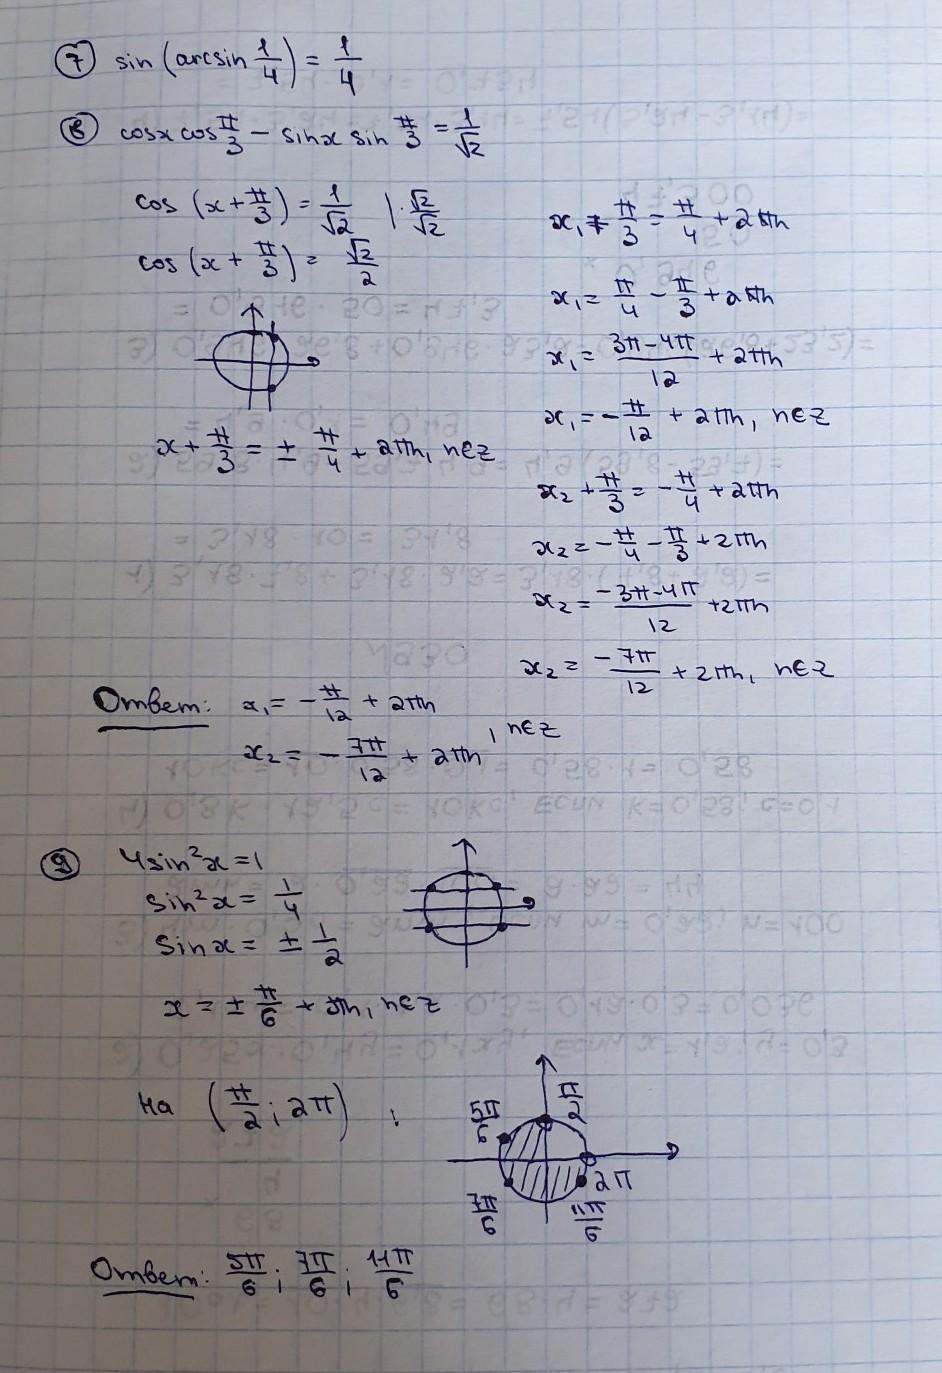 7 sin (arcsin 1/4) = 1/4
8 cosx cos π/3 - sinx sin π/3 = 1/√2
cos (x + π/3) = 1/√2 | · √2/√2
cos (x + π/3) = √2/2
x + π/3 = ± π/4 + 2πn, n∈z
x₁ + π/3 = π/4 + 2πn
x₁ = π/4 - π/3 + 2πn
x₁ = 3π-4π/12 + 2πn
x₁ = - π/12 + 2πn, n∈z
x₂ + π/3 = - π/4 + 2πn
x₂ = - π/4 - π/3 + 2πn
x₂ = -3π-4π/12 + 2πn
x₂ = -7π/12 + 2πn, n∈z
Ответ: x₁ = - π/12 + 2πn
x₂ = - 7π/12 + 2πn, n∈z
9 4sin²x = 1
sin²x = 1/4
sinx = ± 1/2
x = ± π/6 + πn, n∈z
на (π/2; 2π) :
5π/6 π/2
2π
7π/6 11π/6
Ответ: 5π/6; 7π/6; 11π/6